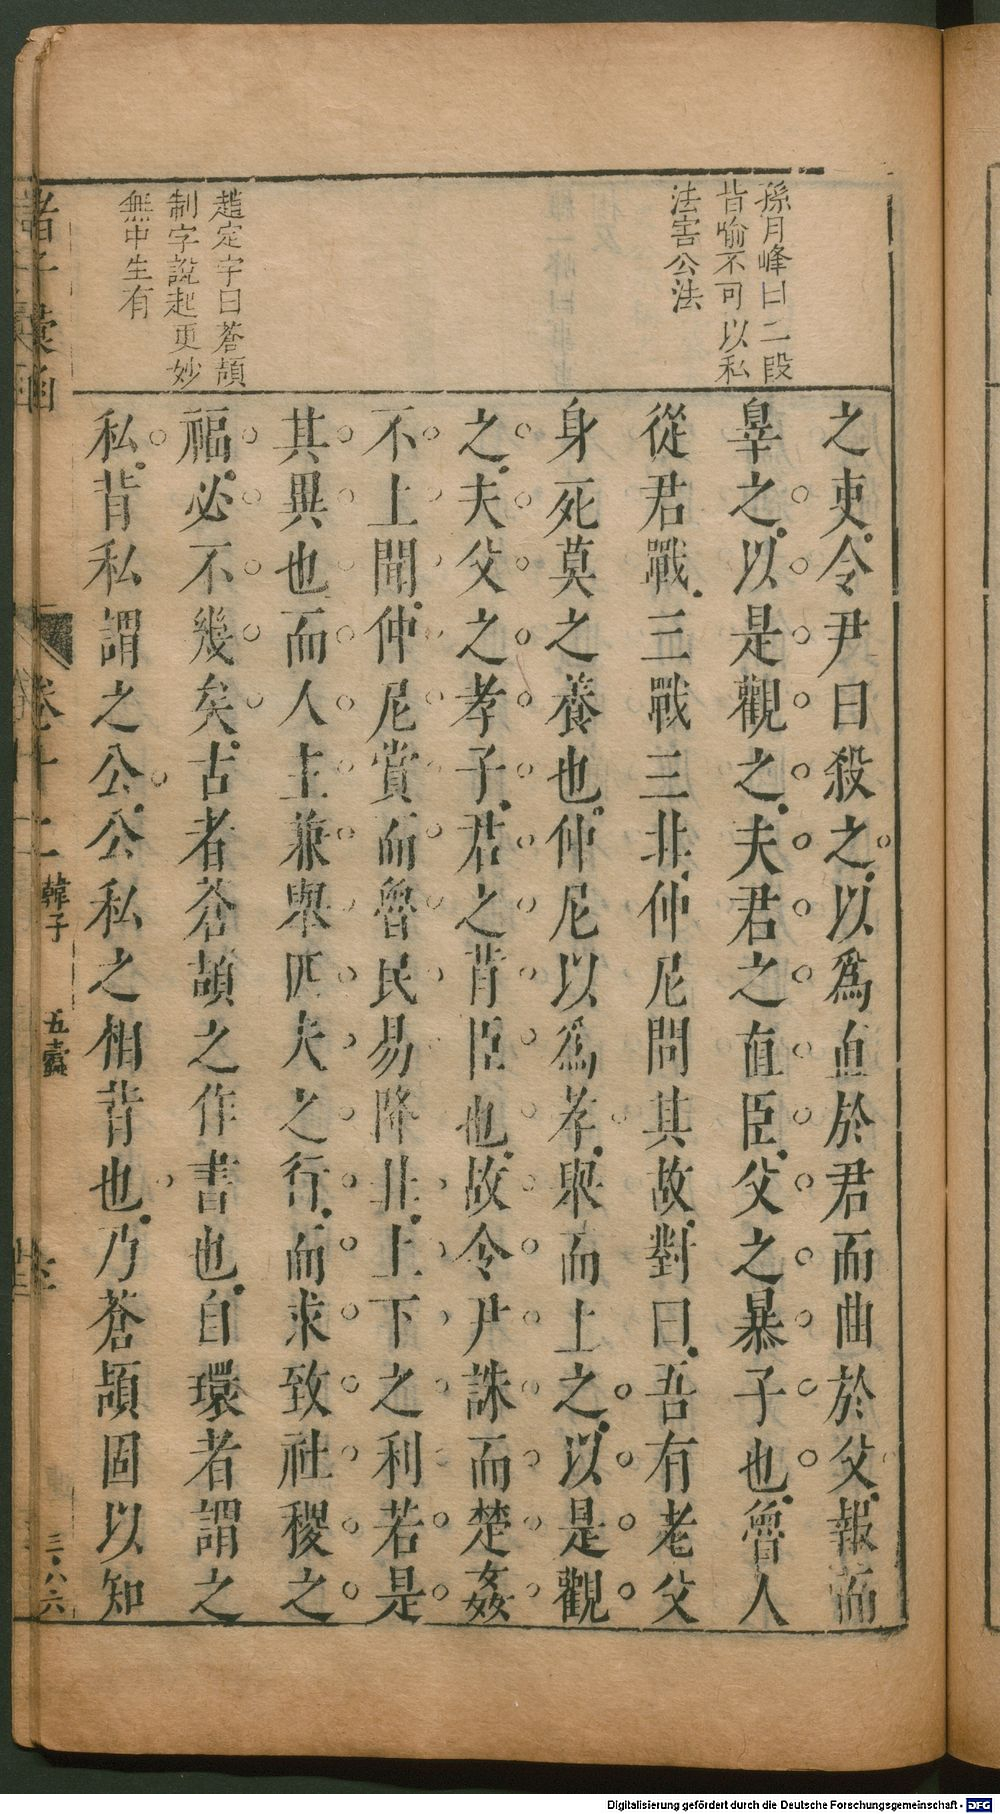 孫月峰曰二段
皆喻不可以私
法害公法
趙定宇曰蒼頡
制字說起更妙
無中生有
之吏令尹曰殺之以爲直於君而曲於父報而
辠之以是觀之夫君之直臣父之暴子也魯人
從君戰三戰三北仲尼問其故對曰吾有老父
身死莫之養也仲尼以爲孝舉而上之以是觀
之夫父之孝子君之背臣也故令尹誅而楚姦
不上聞仲尼賞而魯民易降北上下之利若是
其異也而人主兼舉匹夫之行而求致社稷之
福必不幾矣古者蒼頡之作書也自環者謂之
私背私謂之公公私之相背也乃蒼頡固以知
諸子彙函
卷十二
韓子
五蠹
三八六
Digitalisierung gefördert durch die Deutsche Forschungsgemeinschaft - DFG